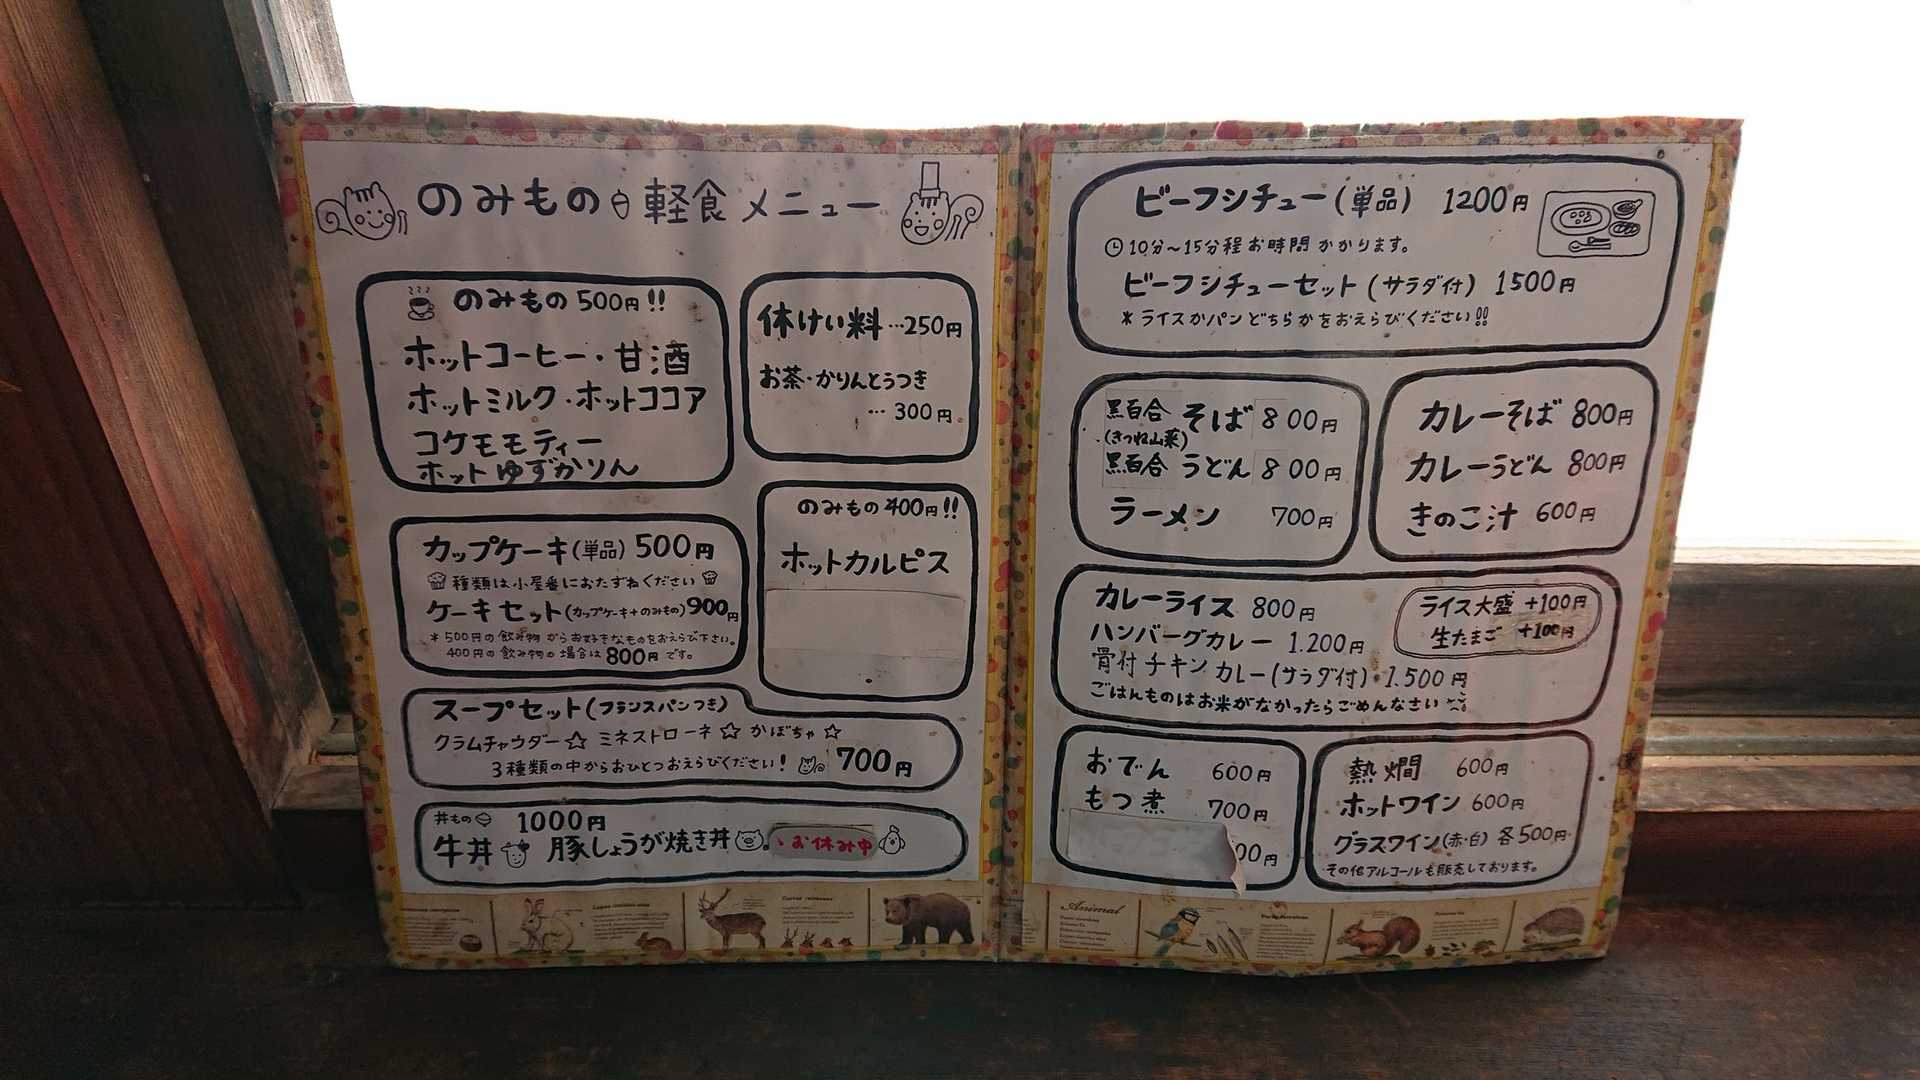 のみもの 軽食メニュー
のみもの 500円!!
ホットコーヒー・甘酒
ホットミルク・ホットココア
コケモモティー
ホットゆずかりん
休けい料…250円
お茶・かりんとうつき
…300円
カップケーキ(単品)500円
種類は小屋番におたずねください
ケーキセット(カップケーキ+のみもの)900円
*500円の飲み物からお好きなものをおえらび下さい。
400円の飲み物の場合は800円です。
のみもの400円!!
ホットカルピス
スープセット(フランスパンつき)
クラムチャウダー☆ ミネストローネ☆ かぼちゃ☆
3種類の中からおひとつおえらびください! 700円
丼もの 1000円
牛丼 豚しょうが焼き丼 お休み中
ビーフシチュー(単品) 1200円
10分〜15分程お時間かかります。
ビーフシチューセット(サラダ付) 1500円
*ライスかパンどちらかをおえらびください!!
黒百合 そば 800円
(きつね山菜)
黒百合 うどん 800円
ラーメン 700円
カレーそば 800円
カレーうどん 800円
きのこ汁 600円
カレーライス 800円
ハンバーグカレー 1.200円
骨付チキンカレー(サラダ付)・1.500円
ごはんものはお米がなかったらごめんなさい
ライス大盛 +100円
生たまご +100円
おでん 600円
もつ煮 700円
00円
熱燗 600円
ホットワイン 600円
グラスワイン(赤・白) 各500円
その他アルコールも販売しております。
Animal